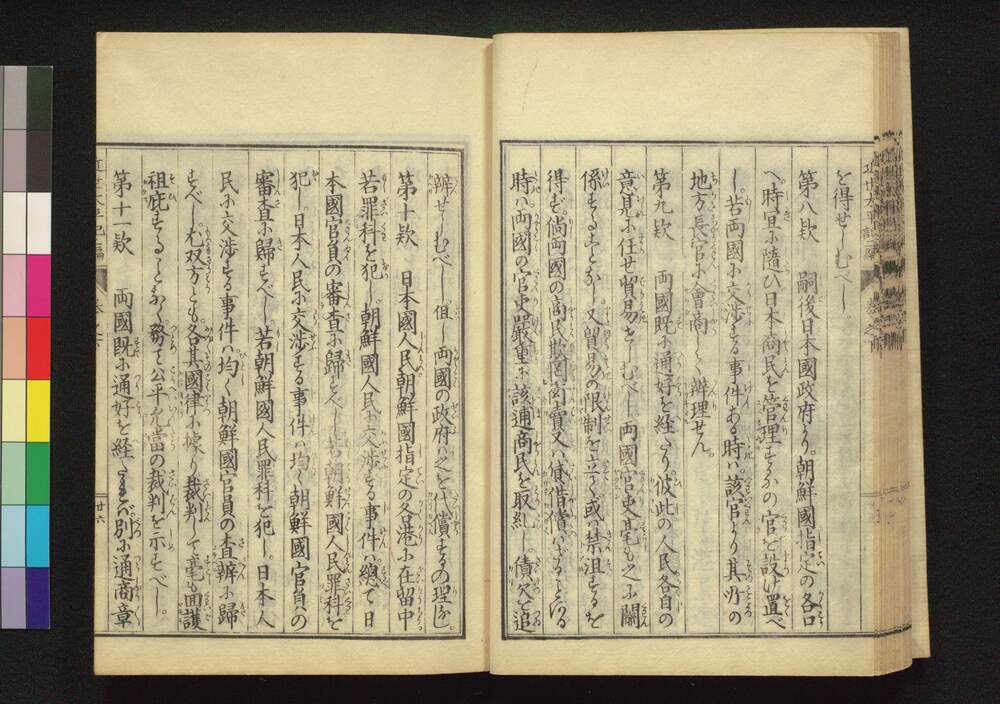 を得せしむべし。
第八欵　嗣後日本國政府より。朝鮮國指定の各口
へ。時宜に隨ひ日本商民を管理するの官を設け置べ
し。若両國に交渉する事件ある時ハ。該官より其所の
地方長官に會商して辦理せん。
第九欵　両國既に通好を経たり。彼此の人民各自の
意見に任せ貿易せしむべし。両國官吏毫も之に關
係することなし。又貿易の限制を立て。或ハ禁沮するを
得ず。倘両國の商民欺罔衒賣又ハ貸借償ハざることある
時ハ。両國の官吏嚴重に該逋商民を取糺し。債欠を追
辦せしむべし。但し両國の政府ハ之を代償するの理なし。
第十欵　日本國人民朝鮮國指定の各港に在留中
若罪科を犯し。朝鮮國人民に交渉する事件ハ總て日
本國官員の審査に歸すべし。若朝鮮國人民罪科を
犯し。日本人民に交渉する事件ハ均く朝鮮國官員の
審査に歸すべし。若朝鮮國人民罪科を犯し。日本人
民に交渉する事件ハ均く朝鮮國官員の査辦に歸
すべし。尤双方とも各其國律に據り裁判して毫も回護
祖庇することなく務て公平允當の裁判を示すべし。
第十一欵　両國既に通好を経たれバ。別に通商章
近世太平記二編
廿六